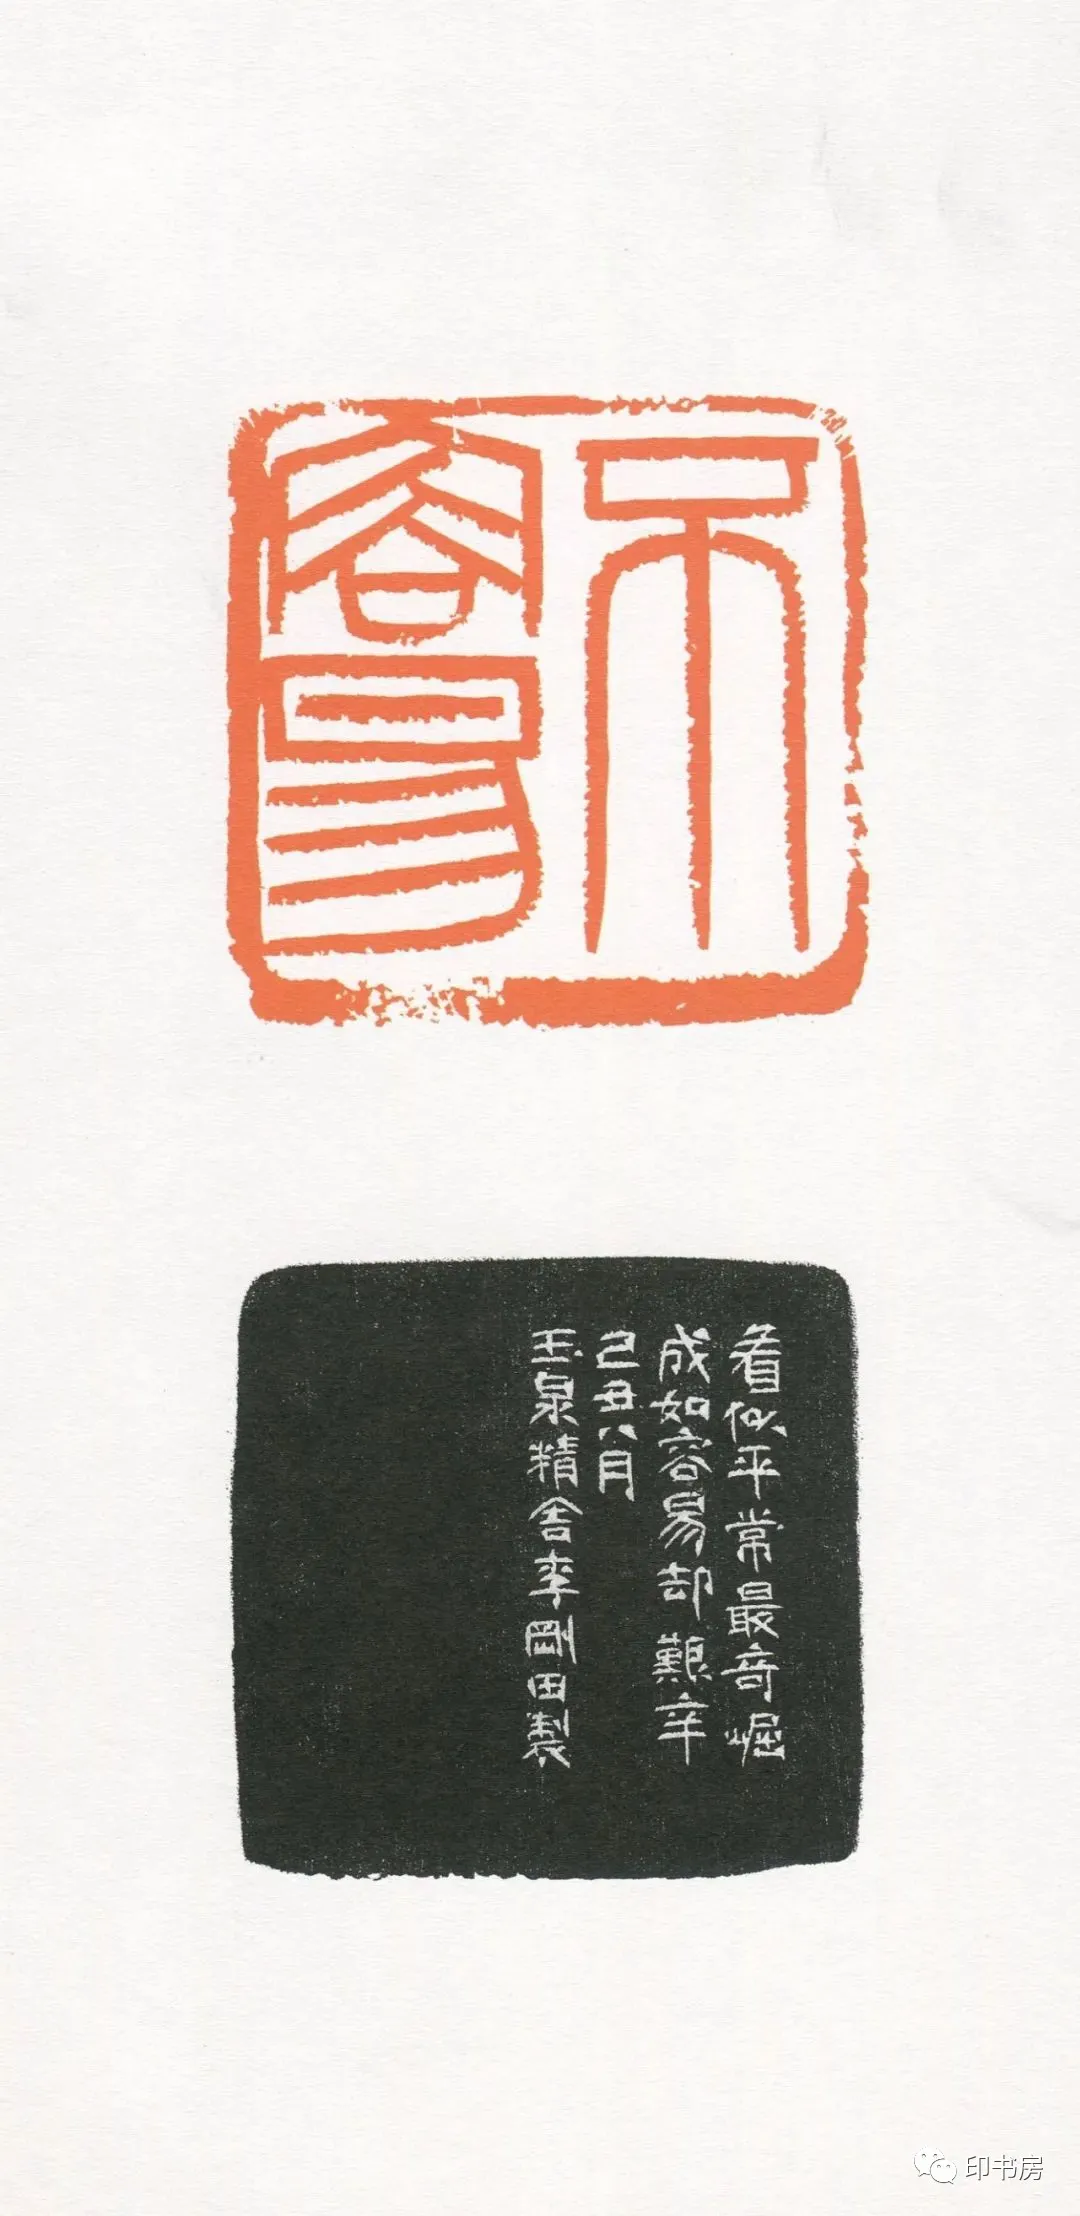 不
容易
看似平常最奇崛
成如容易却艱辛
己丑八月
玉泉精舍李剛田製
印书房